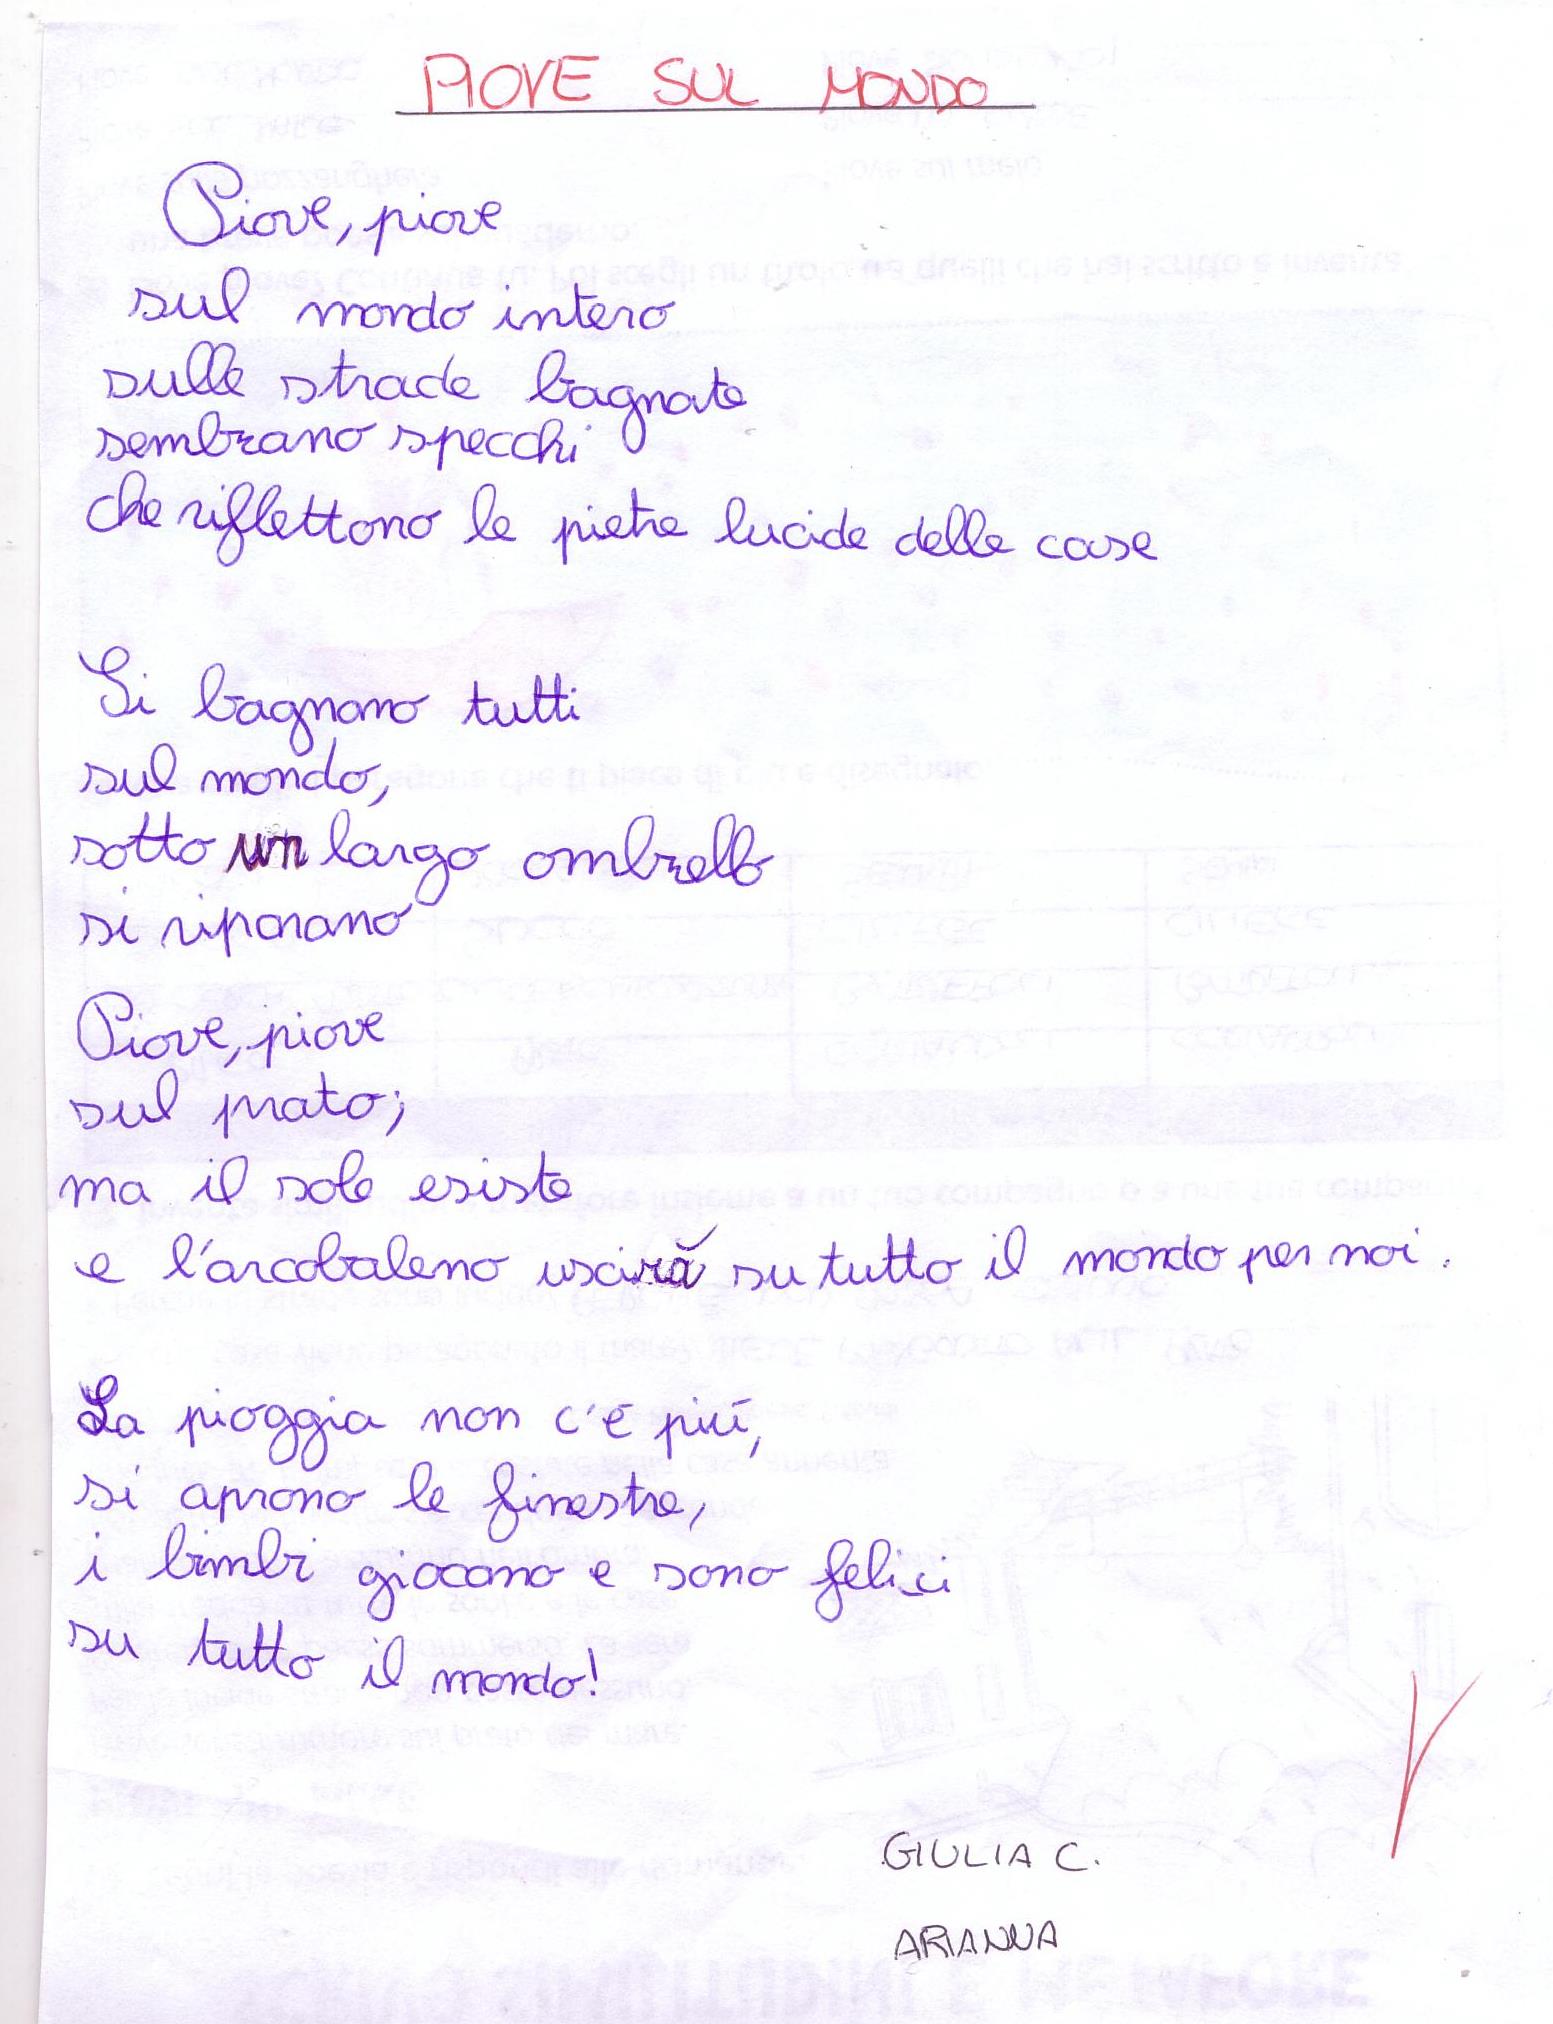 PIOVE SUL MONDO
Piove, piove
sul mondo intero
sulle strade bagnate
sembrano specchi
che riflettono le pietre lucide delle case
Si bagnano tutti
sul mondo,
sotto un largo ombrello
si riparano
Piove, piove
sul prato;
ma il sole esiste
e l'arcobaleno uscirà su tutto il mondo per noi.
La pioggia non c'è più,
si aprono le finestre,
i bimbi giocano e sono felici
su tutto il mondo!
GIULIA C.
ARIANNA